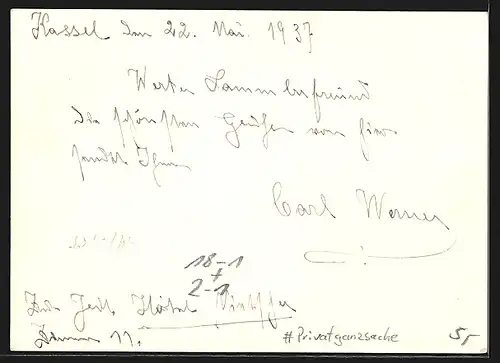 Kassel den 22. Mai. 1937
Werter Sammlerfreund
Die schönsten Grüße von hier
sendet Ihnen
Carl Werner
18-1
+
2-1
Zur Zeit. Hotel
Zimmer 11.
#Privatganzsache 5,-